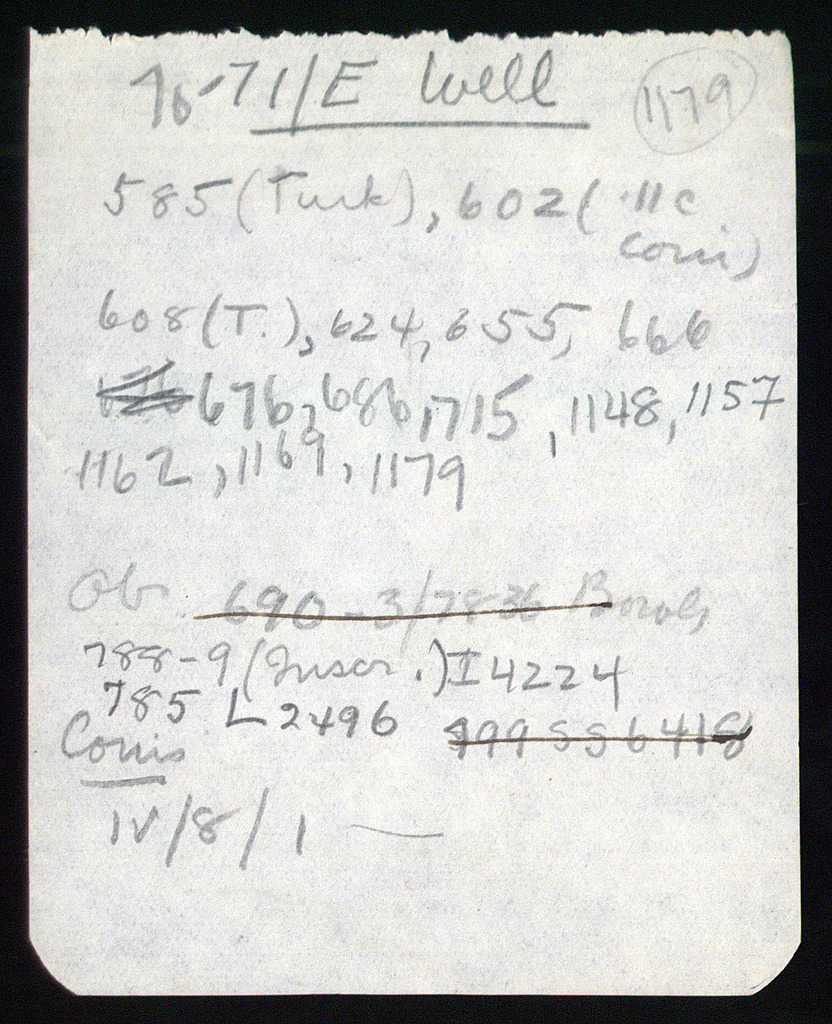 76-71/E Well 1179
585 (Turk), 602 (11c
Coin)
608 (T.), 624, 655, 666
676, 686, 1715, 1148, 1157
1162, 1169, 1179
Ob. 690-3/7836 Bowls
788-9 (Inscr.) I 4224
785 L 2496 999 SS 6418
Coins
IV/8/1 —